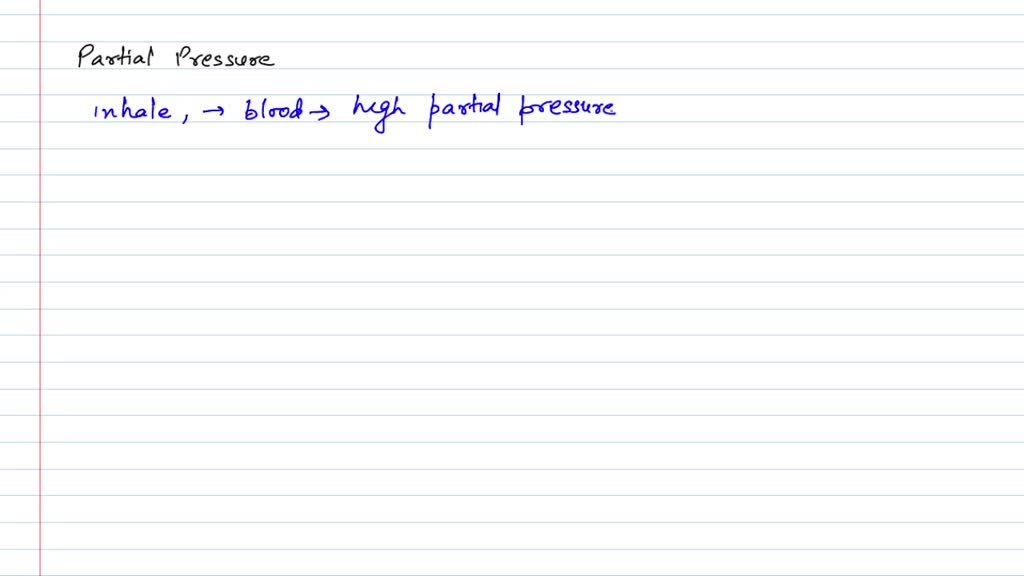 Partial Pressure
inhale, → blood → high partial pressure